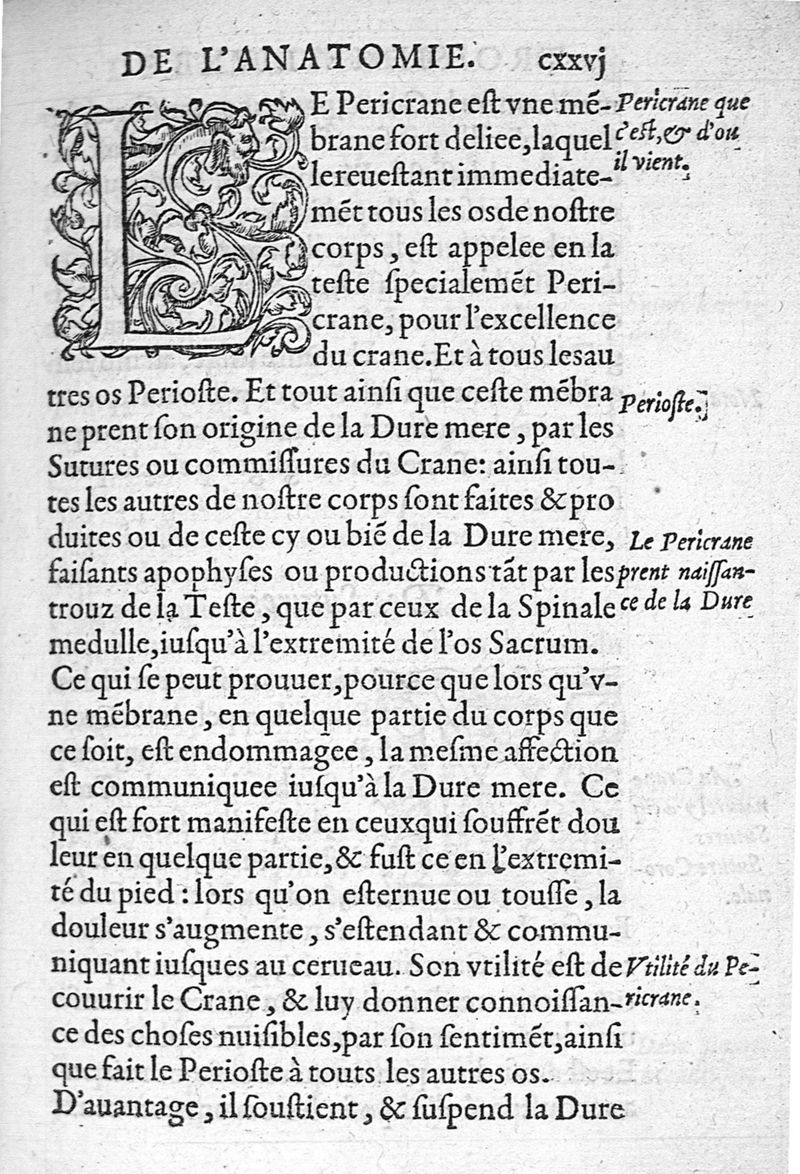 DE L'ANATOMIE. cxxvj
LE Pericrane eſt vne mē-
brane fort deliee, laquel
lereueſtant immediate-
mēt tous les osde noſtre
corps, eſt appelee en la
teſte ſpecialemēt Peri-
crane, pour l'excellence
du crane. Et à tous lesau
tres os Perioſte. Et tout ainſi que ceſte mēbra
ne prent ſon origine de la Dure mere, par les
Sutures ou commiſſures du Crane: ainſi tou-
tes les autres de noſtre corps ſont faites & pro
duites ou de ceſte cy ou biē de la Dure mere,
faiſants apophyſes ou productions tāt par les
trouz de la Teſte, que par ceux de la Spinale
medulle, iuſqu'à l'extremité de l'os Sacrum.
Ce qui ſe peut prouuer, pource que lors qu'v-
ne mēbrane, en quelque partie du corps que
ce ſoit, eſt endommagee, la meſme affection
eſt communiquee iuſqu'à la Dure mere. Ce
qui eſt fort manifeſte en ceuxqui ſouffrēt dou
leur en quelque partie, & fuſt ce en l'extremi-
té du pied: lors qu'on eſternue ou touſſe, la
douleur s'augmente, s'eſtendant & commu-
niquant iuſques au cerueau. Son vtilité eſt de
couurir le Crane, & luy donner connoiſſan-
ce des choſes nuiſibles, par ſon ſentimēt, ainſi
que fait le Perioſte à touts les autres os.
D'auantage, il ſouſtient, & ſuſpend la Dure
Pericrane que
c'eſt, & d'ou
il vient.
Perioſte.
Le Pericrane
prent naiſſan-
ce de la Dure
Vtilité du Pe-
ricrane.